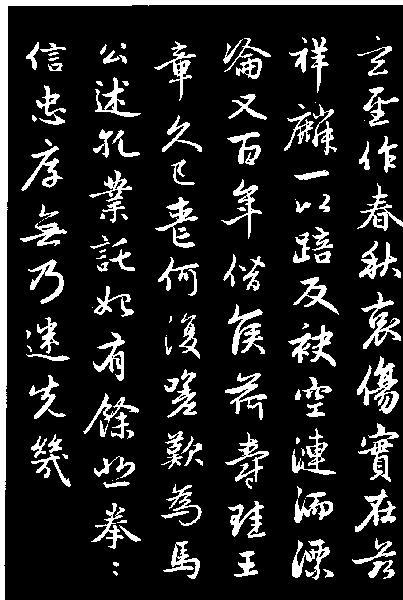 玄聖作春秋哀傷實在茲
祥麟一以踣反袂空漣洏漂
淪又百年僭侯荷爵珪王
章久已喪何復嗟歎為馬
公述孔業託始有餘悲拳〻
信忠厚無乃迷先幾